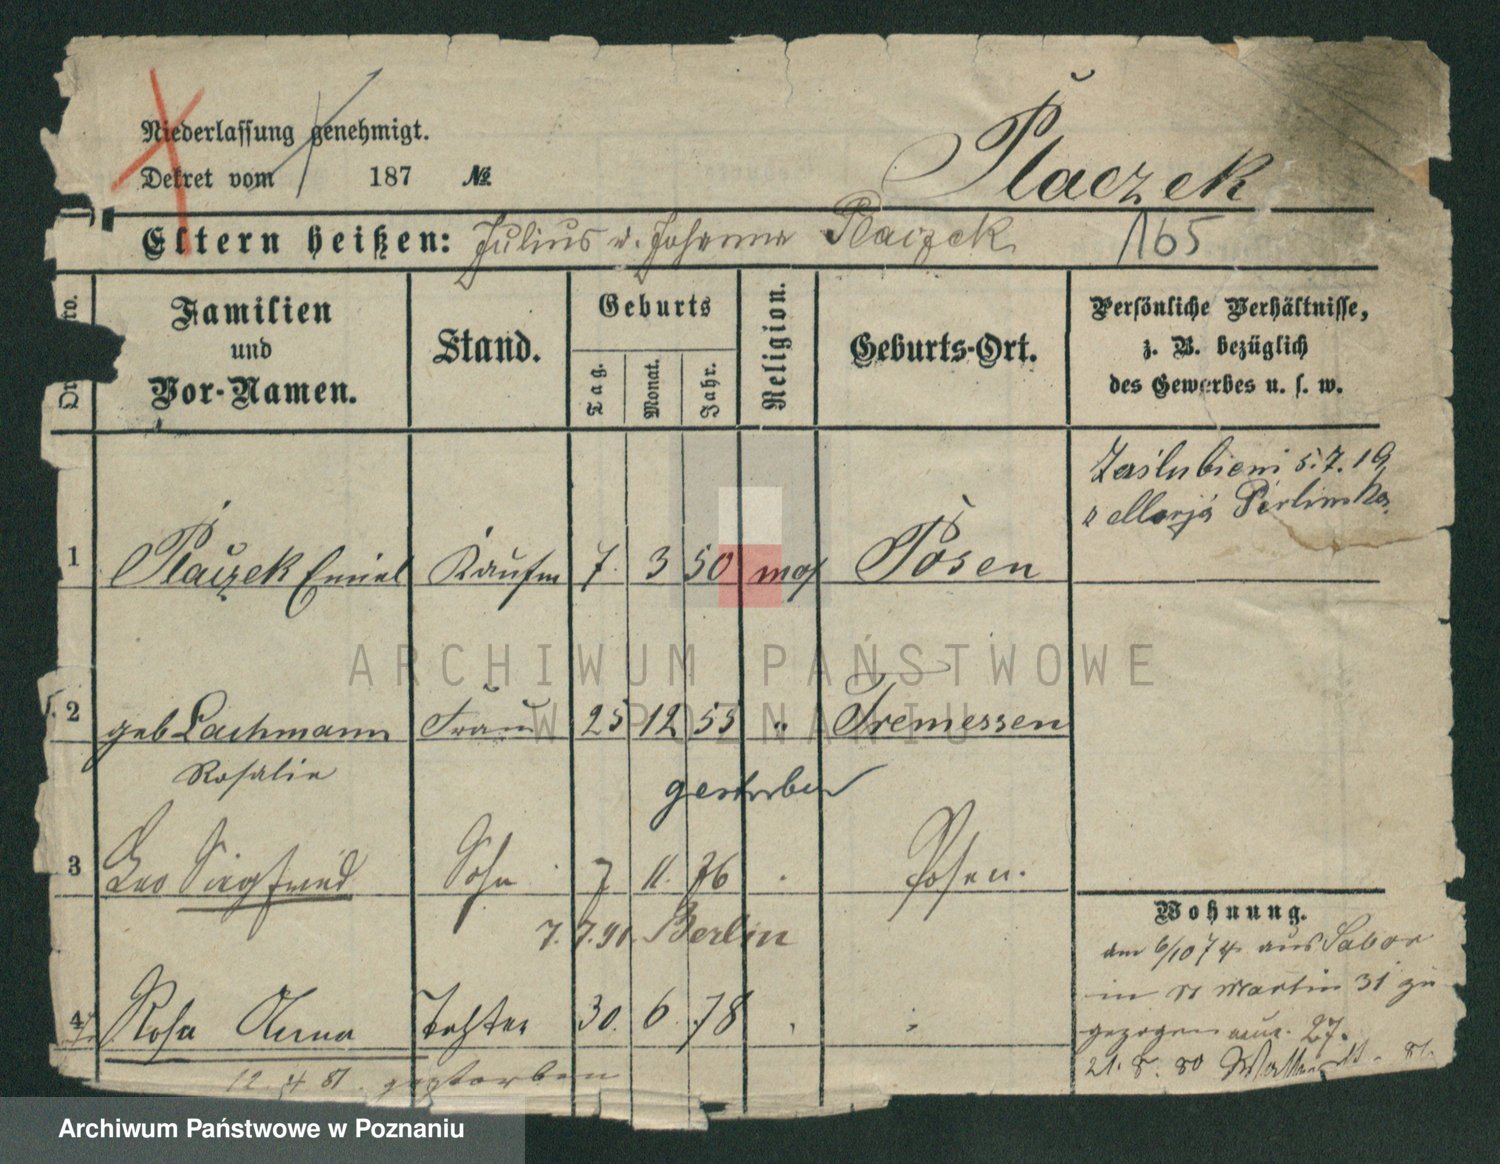 Niederlassung genehmigt.
Dekret vom 187 №
Placzek
Eltern heißen: Julius u. Johanna Placzek 165
Familien und Vor-Namen.
Stand.
Geburts
Tag. Monat. Jahr.
Religion.
Geburts-Ort.
Persönliche Verhältnisse,
z. B. bezüglich
des Gewerbes u. s. w.
Zaślubieni 5.7.19
z Marją
1 Placzek Emiel Kaufm 7. 3 50 mos Posen
2 geb Lachmann Frau 25 12 55 " Tremessen
Rosalie
gestorben
3 Leo Siegfried Sohn 7 11. 76 Posen.
7. 7. 91. Berlin
4 Rosa Anna Tochter 30. 6. 78
12. 4 81. gestorben
Wohnung.
am 6/10 74 aus Sabor
in St Martin 31 ge
gezogen 27.
21. 8. 80
ARCHIWUM PAŃSTWOWE
W POZNANIU
Archiwum Państwowe w Poznaniu